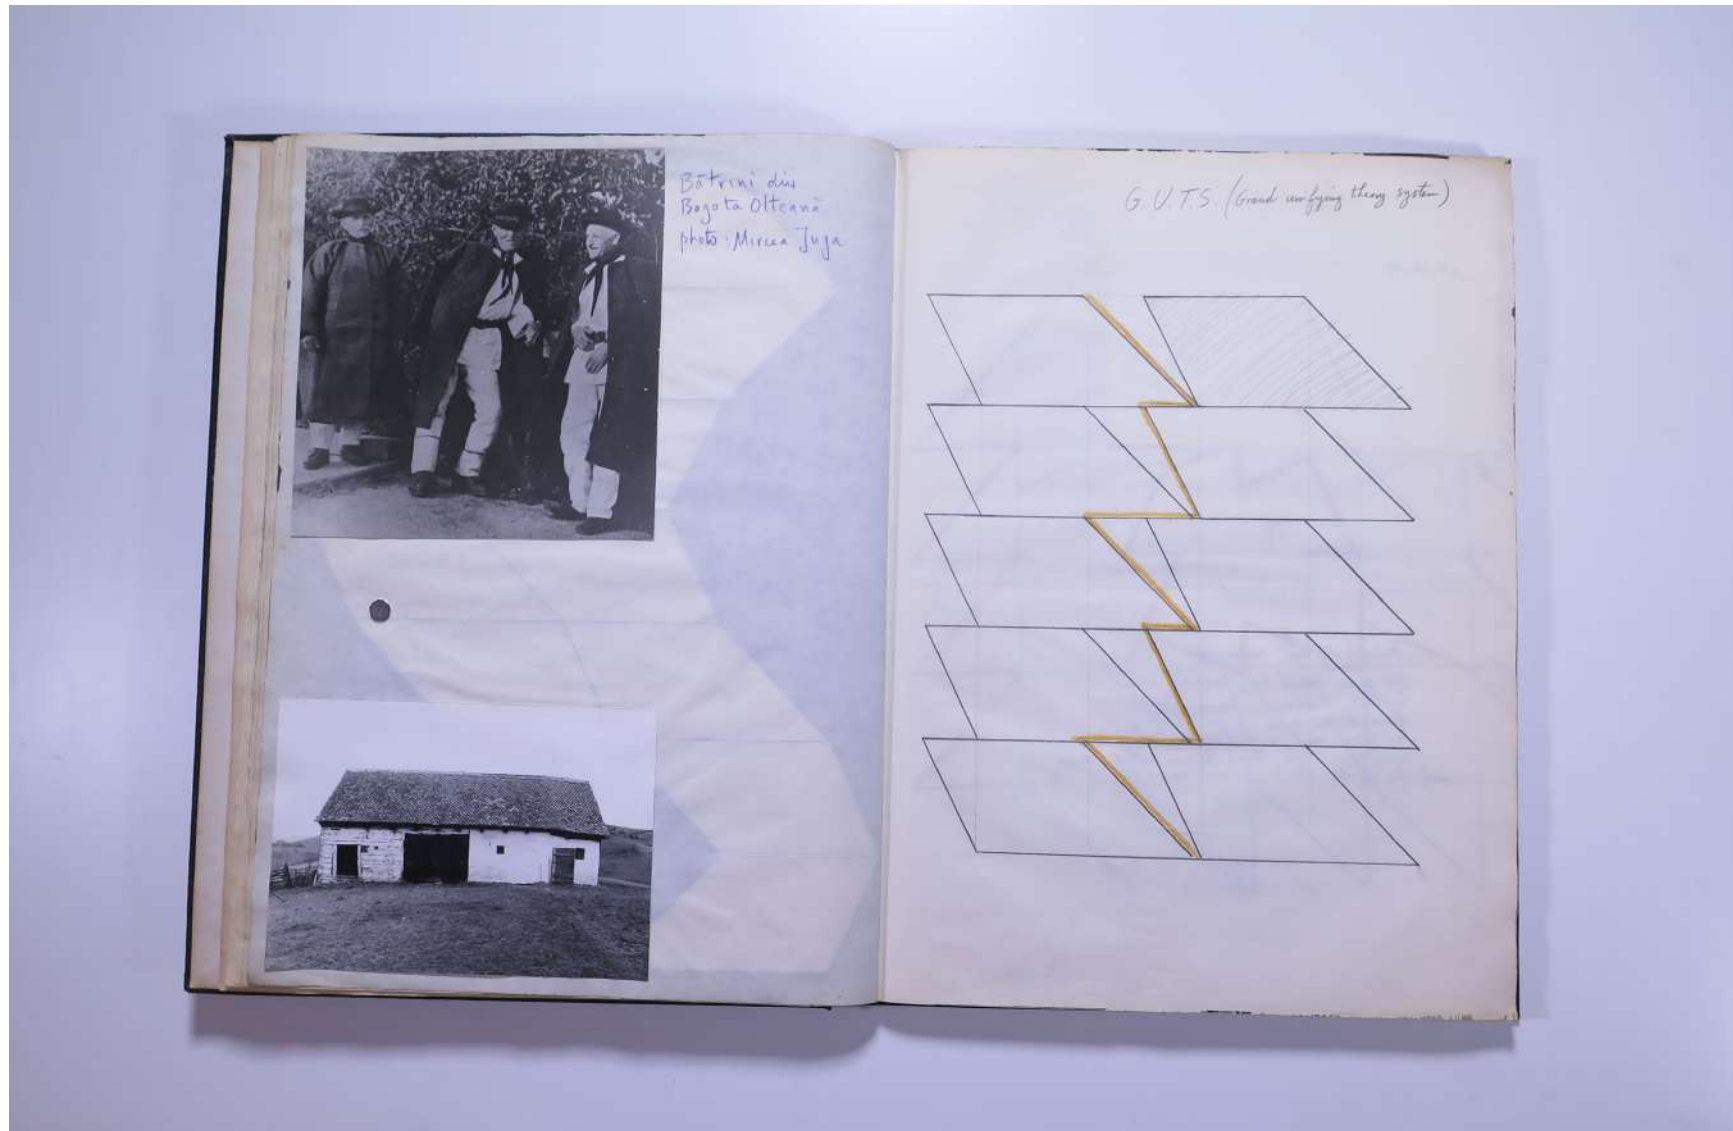 Bătrîni din
Bogota Olteană
photo: Mircea Juga
G.U.T.S. (Grand unifying theory system)